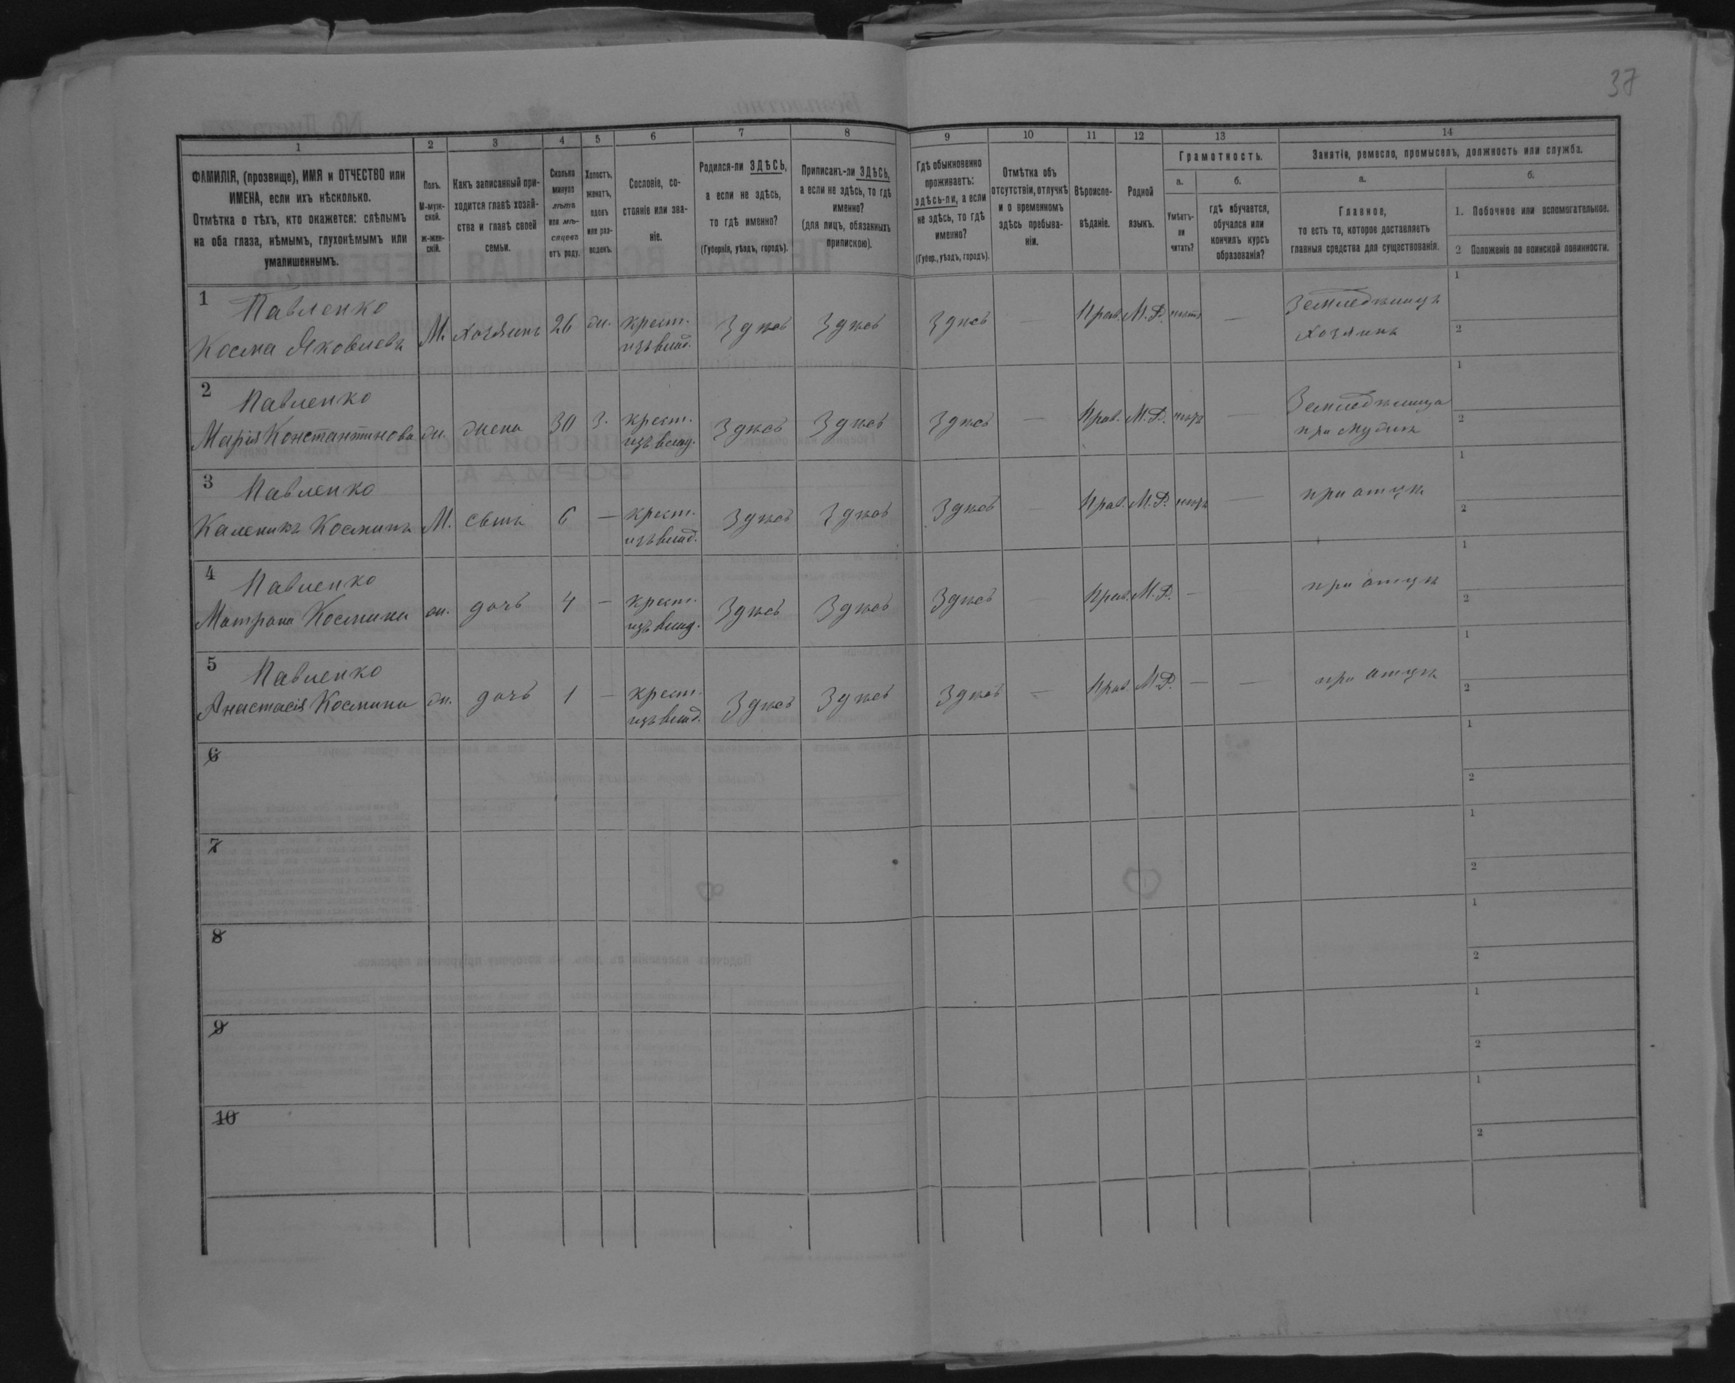 37
1 2 3 4 5 6 7 8 9 10 11 12 13 14
ФАМИЛІЯ, (прозвище), ИМЯ и ОТЧЕСТВО или ИМЕНА, если ихъ нѣсколько.
Отмѣтка о тѣхъ, кто окажется: слѣпымъ на оба глаза, нѣмымъ, глухонѣмымъ или умалишеннымъ.
Полъ.
М-муж-
ской.
ж-жен-
скій.
Какъ записанный при-
ходится главѣ хозяй-
ства и главѣ своей
семьи.
Сколько
минуло
лѣтъ
или мѣ-
сяцевъ
отъ роду.
Холостъ,
женатъ,
вдовъ
или раз-
веденъ.
Сословіе, со-
стояніе или зва-
ніе.
Родился-ли ЗДѢСЬ,
а если не здѣсь,
то гдѣ именно?
(Губернія, уѣздъ, городъ).
Приписанъ-ли ЗДѢСЬ,
а если не здѣсь, то гдѣ
именно?
(для лицъ, обязанныхъ
припискою).
Гдѣ обыкновенно
проживаетъ:
здѣсь-ли, а если
не здѣсь, то гдѣ
именно?
(Губер., уѣздъ, городъ).
Отмѣтка объ
отсутствіи, отлучкѣ
и о временномъ
здѣсь пребыва-
ніи.
Вѣроиспо-
вѣданіе.
Родной
языкъ.
Грамотность.
а.
Умѣетъ-
ли
читать?
б.
гдѣ обучается,
обучался или
кончилъ курсъ
образованія?
Занятіе, ремесло, промыселъ, должность или служба.
а.
Главное,
то есть то, которое доставляетъ
главныя средства для существованія.
б.
1. Побочное или вспомогательное.
2 Положеніе по воинской повинности.
1 Павленко
Косма Яковлевъ М. хозяинъ 26 ж. крест. изъ влад. Здѣсь Здѣсь Здѣсь — Прав. М.Р. нѣтъ — Земледѣлецъ хозяинъ 1 2
2 Павленко
Марія Константинова ж. жена 30 з. крест. изъ влад. Здѣсь Здѣсь Здѣсь — Прав. М.Р. нѣтъ — Земледѣлица при мужѣ 1 2
3 Павленко
Каленикъ Косминъ М. сынъ 6 — крест. изъ влад. Здѣсь Здѣсь Здѣсь — Прав. М.Р. нѣтъ — при отцѣ 1 2
4 Павленко
Матрона Космина ж. дочь 4 — крест. изъ влад. Здѣсь Здѣсь Здѣсь — Прав. М.Р. — при отцѣ 1 2
5 Павленко
Анастасія Космина ж. дочь 1 — крест. изъ влад. Здѣсь Здѣсь Здѣсь — Прав. М.Р. — — при отцѣ 1 2
6 1 2
7 1 2
8 1 2
9 1 2
10 1 2